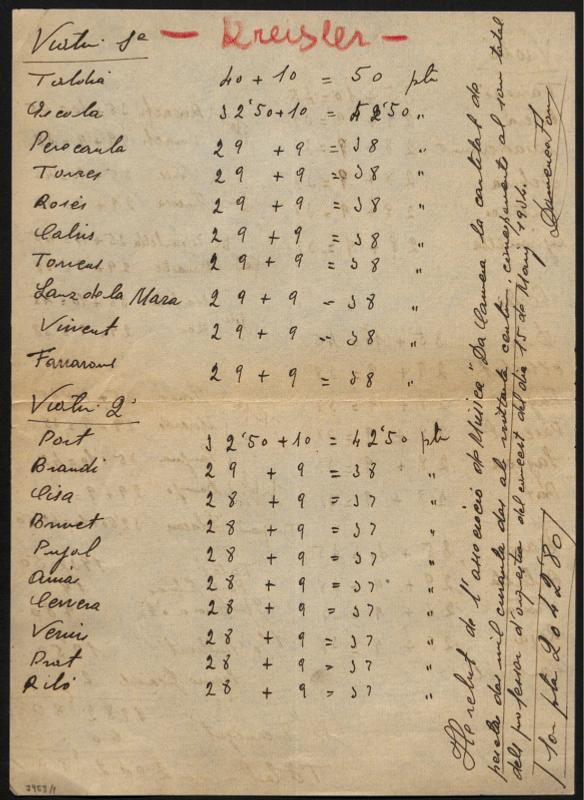 - Kreisler -
Violin 1ª
Toldrà 40 + 10 = 50 pts
Escola 32'50 + 10 = 42'50 "
Perecaula 29 + 9 = 38 "
Torres 29 + 9 = 38 "
Rosés 29 + 9 = 38 "
Calvis 29 + 9 = 38 "
Torrens 29 + 9 = 38 "
Lanz de la Maza 29 + 9 = 38 "
Vincent 29 + 9 = 38 "
29 + 9 = 38 "
Violin 2ª
Port 32'50 + 10 = 42'50 pts
Brandi 29 + 9 = 38 "
Cisa 28 + 9 = 37 "
Brunet 28 + 9 = 37 "
Pujol 28 + 9 = 37 "
28 + 9 = 37 "
Cervera 28 + 9 = 37 "
28 + 9 = 37 "
Prat 28 + 9 = 37 "
Ribó 28 + 9 = 37 "
He rebut de l'associació de Música "Da Camera la cantitat de
pesetes dos mil curanta dos amb vuitanta centims, corresponents al sou total
dels professors d'orquestra del concert del dia 15 de Maig 1934.
Son pts 2042'80
3953/1